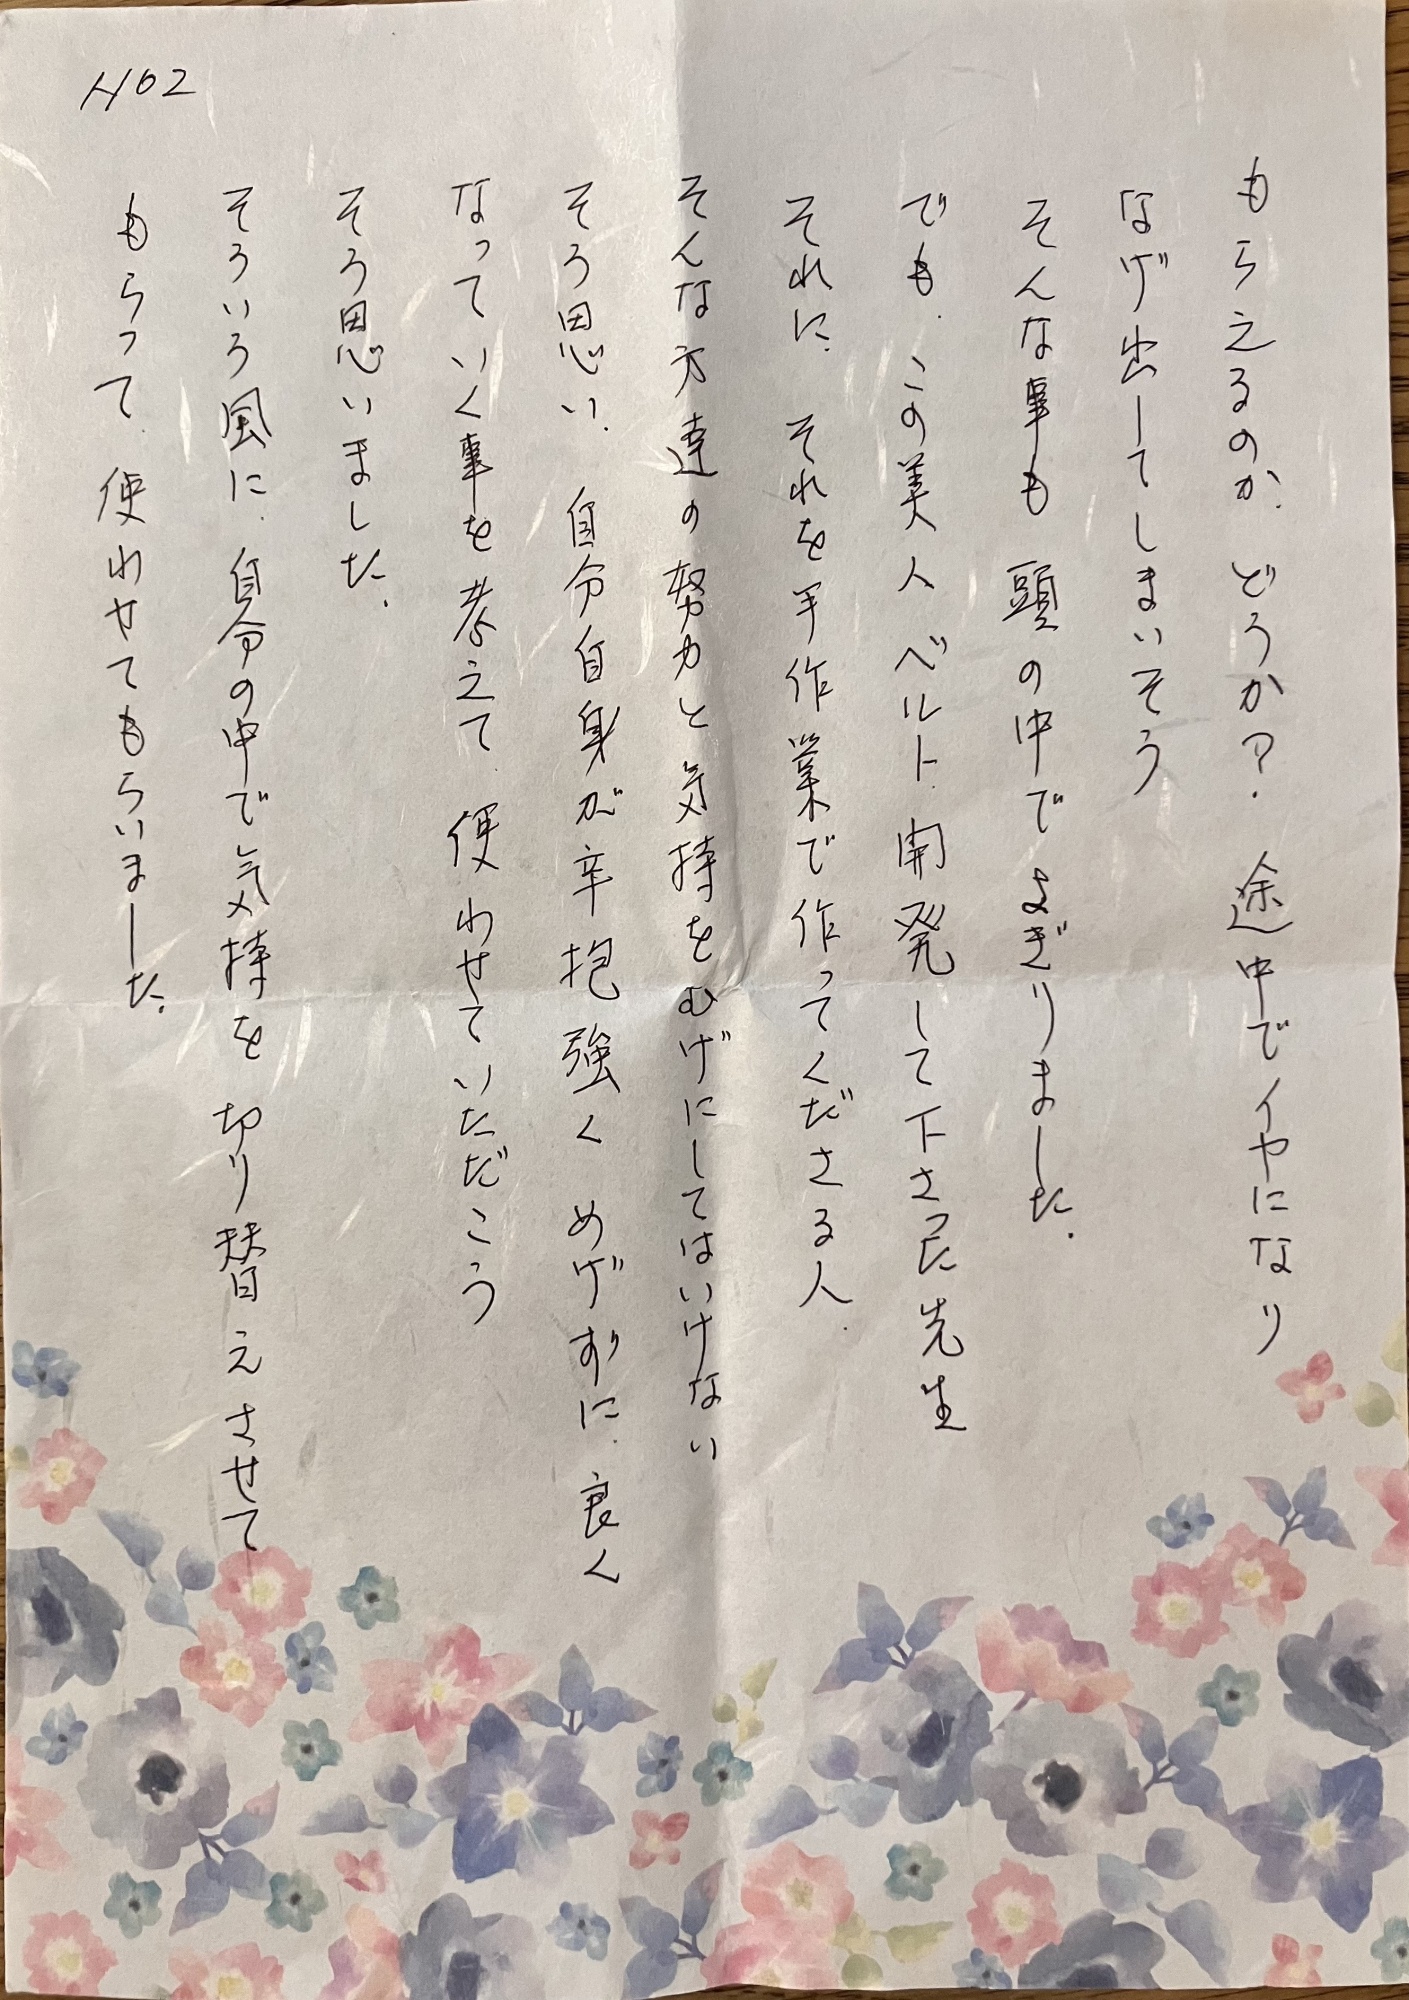 NO2
もらえるのか、どうか?. 途中でイヤになり
なげ出してしまいそう
そんな事も 頭の中で よぎりました.
でも、この美人ベルト、開発して下さった先生
それに、それを手作業で作ってくださる人.
そんな方達の努力と気持をむげにしてはいけない
そう思い、自分自身が辛抱強く めげずに、良く
なっていく事を考えて、使わせていただこう
そう思いました.
そういう風に、自分の中で気持を 切り替えさせて
もらって、使わせてもらいました.